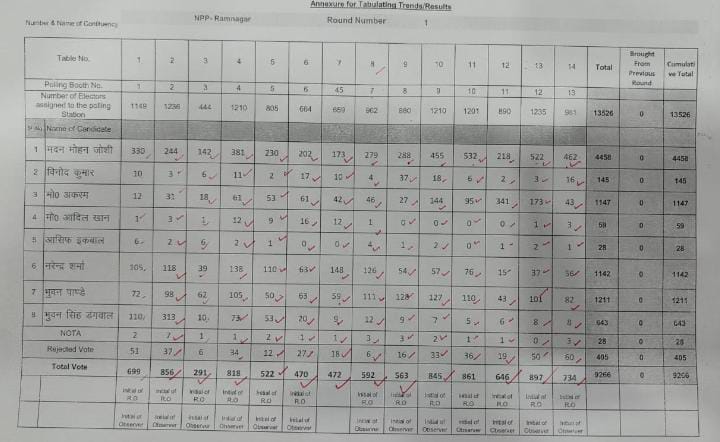 Annexure for Tabulating Trends/Results
Number & Name of Contituency NPP- Ramnagar Round Number 1
Table No. 1 2 3 4 5 6 7 8 9 10 11 12 13 14 Total Brought From Previous Round Cumulati ve Total
Polling Booth No. 1 2 3 4 5 6 45 7 8 9 10 11 12 13
Number of Electors assigned to the polling Station 1149 1236 444 1210 805 664 659 962 880 1210 1201 890 1235 981 13526 0 13526
Name of Candidate
1 मदन मोहन जोशी 330 244 142 381 230 202 173 279 288 455 532 218 522 462 4458 0 4458
2 विनोद कुमार 10 3 6 11 2 17 10 4 37 18 6 2 3 16 145 0 145
3 मो0 अकरम 12 31 18 61 53 61 42 46 27 144 95 341 173 43 1147 0 1147
4 मो0 आदिल खान 1 3 1 12 9 16 12 1 0 0 0 0 1 3 59 0 59
5 आसिफ इकबाल 6 2 6 2 1 0 0 4 1 2 0 1 2 1 28 0 28
6 नरेन्द्र शर्मा 105 118 39 138 110 63 148 126 54 57 76 15 37 56 1142 0 1142
7 भुवन पाण्डे 72 98 62 105 50 63 59 111 128 127 110 43 101 82 1211 0 1211
8 भुवन सिंह डंगवाल 110 313 10 73 53 20 9 12 9 7 5 6 8 8 643 0 643
NOTA 2 7 1 1 2 1 1 3 3 2 1 1 0 3 28 0 28
Rejected Vote 51 37 6 34 12 27 18 6 16 33 36 19 50 60 405 0 405
Total Vote 699 856 291 818 522 470 472 592 563 845 861 646 897 734 9266 0 9266
Initial of R.O Initial of R.O Initial of R.O Initial of R.O Initial of R.O Initial of R.O Initial of R.O Initial of R.O Initial of R.O Initial of R.O Initial of R.O Initial of R.O Initial of R.O
Initial of Observer Initial of Observer Initial of Observer Initial of Observer Initial of Observer Initial of Observer Initial of Observer Initial of Observer Initial of Observer Initial of Observer Initial of Observer Initial of Observer Initial of Observer